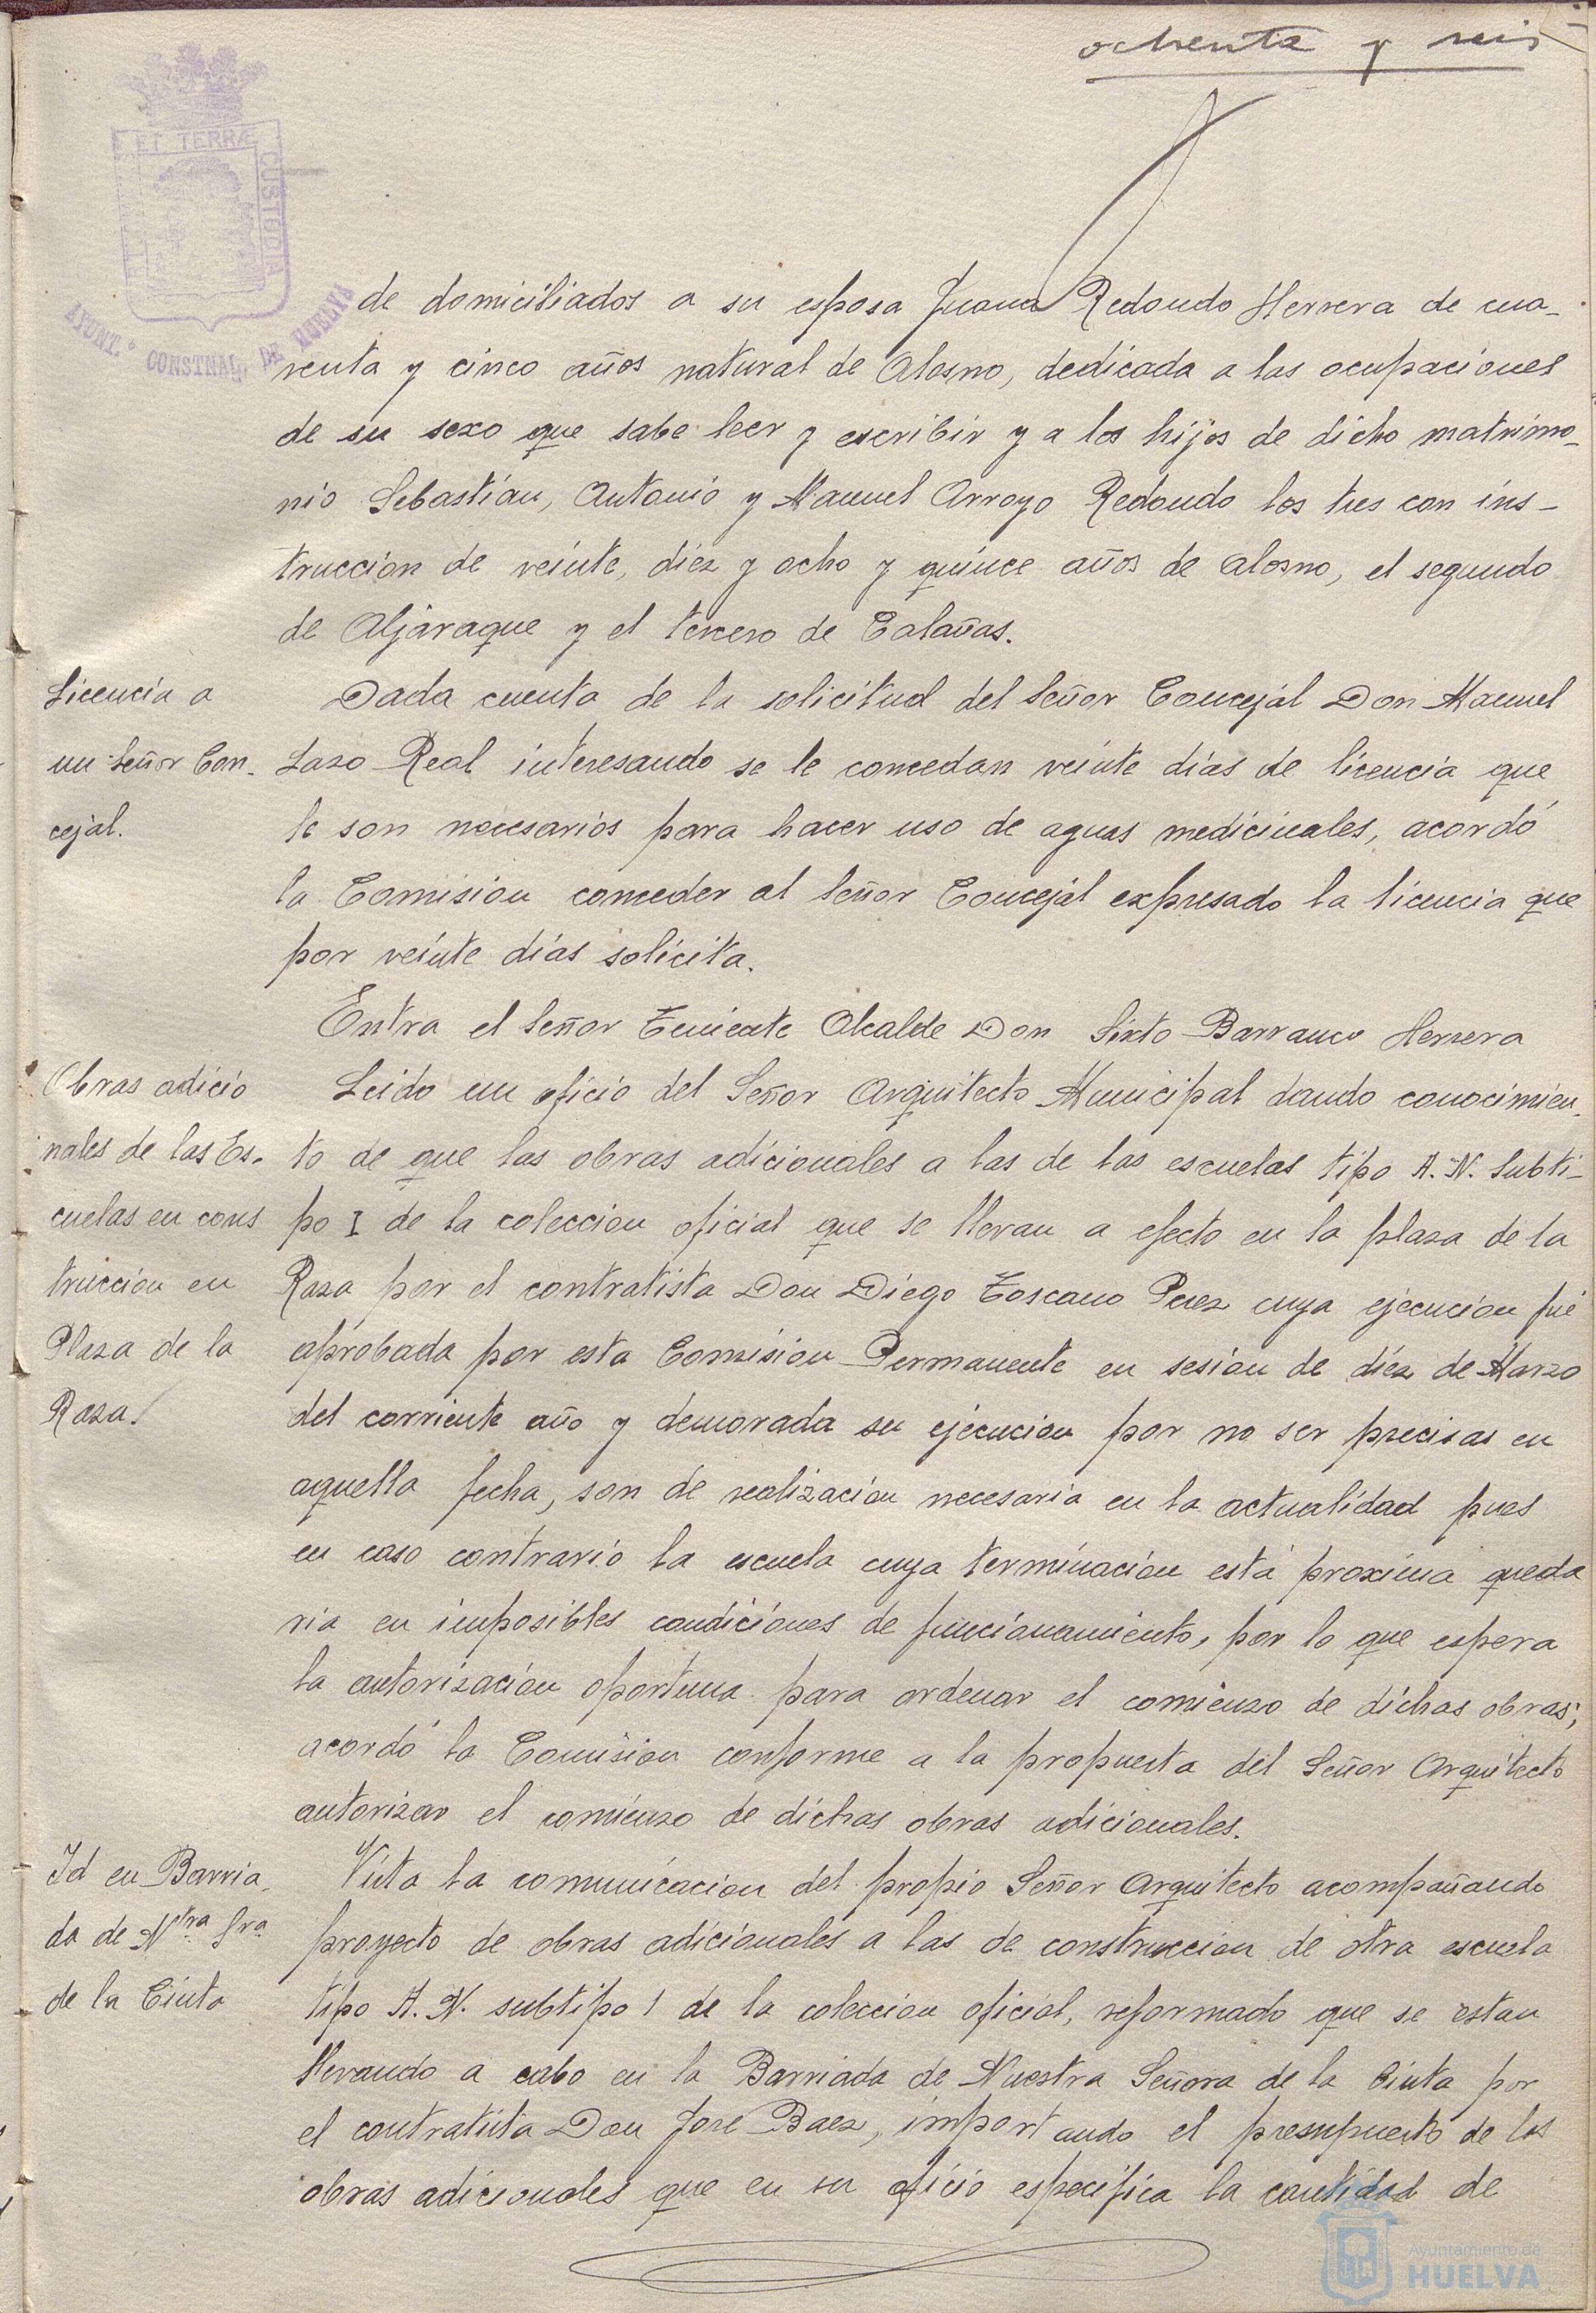 ochenta y seis
ET TERRÆ
CUSTODIA
AYUNT.º CONSTNAL. DE HUELVA
de domiciliados a su esposa Juana Redondo Herrera de cua-
renta y cinco años natural de Alosno, dedicada a las ocupaciones
de su sexo que sabe leer y escribir y a los hijos de dicho matrimo-
nio Sebastián, Antonio y Manuel Arroyo Redondo los tres con ins-
trucción de veinte, diez y ocho y quince años de Alosno, el segundo
de Aljaraque y el tercero de Calañas.
Licencia a
un Señor Con-
cejal.
Dada cuenta de la solicitud del Señor Concejal Don Manuel
Lazo Real interesando se le concedan veinte días de licencia que
le son necesarios para hacer uso de aguas medicinales, acordó
la Comision conceder al Señor Concejal expresado la licencia que
por veinte días solicita.
Entra el Señor Teniente Alcalde Don Sixto Barranco Herrera
Obras adicio
nales de las Es-
cuelas en cons
trucción en
Plaza de la
Raza.
Leido un oficio del Señor Arquitecto Municipal dando conocimien-
to de que las obras adicionales a las de las escuelas tipo A. N. Subti-
po I de la coleccion oficial que se llevan a efecto en la plaza de la
Raza por el contratista Don Diego Toscano Perez cuya ejecucion fué
aprobada por esta Comision Permanente en sesion de diez de Marzo
del corriente año y demorada su ejecucion por no ser precisas en
aquella fecha, son de realización necesaria en la actualidad pues
en caso contrario la escuela cuya terminación está proxima queda
ria en imposibles condiciones de funcionamiento, por lo que espera
la autorización oportuna para ordenar el comienzo de dichas obras;
acordó la Comision conforme a la propuesta del Señor Arquitecto
autorizar el comienzo de dichas obras adicionales.
Id en Barria-
da de Ntra Sra
de la Cinta
Vista la comunicacion del propio Señor Arquitecto acompañando
proyecto de obras adicionales a las de construccion de otra escuela
tipo A. N. subtipo 1 de la coleccion oficial, reformado que se estan
llevando a cabo en la Barriada de Nuestra Señora de la Cinta por
el contratista Don Jose Baez, importando el presupuesto de las
obras adicionales que en su oficio especifica la cantidad de
Ayuntamiento de
HUELVA